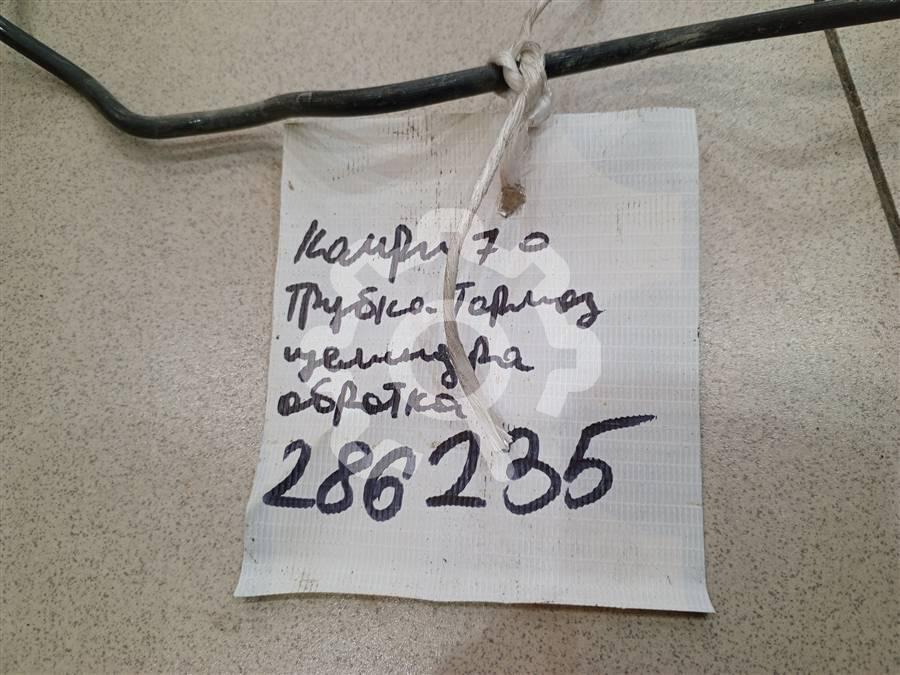 Камри 70
Трубка Тормоз
цилиндра
обратка
286235